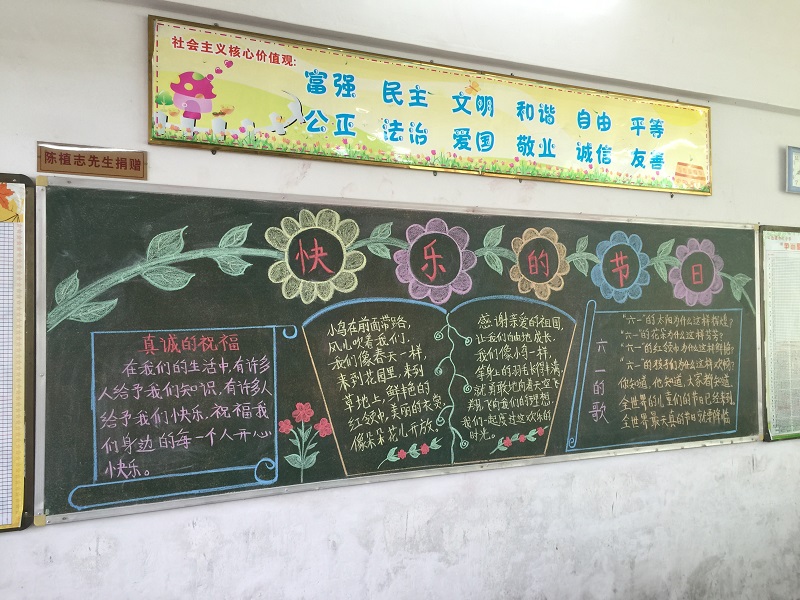 社会主义核心价值观:
富强 民主 文明 和谐 自由 平等
公正 法治 爱国 敬业 诚信 友善
陈植志先生捐赠
快乐的节日
真诚的祝福
在我们的生活中,有许多
人给予我们知识,有许多人
给予我们快乐.祝福我
们身边的每一个人开心
快乐。
小鸟在前面带路,
风儿吹着我们,
我们像春天一样,
来到花园里,来到
草地上,鲜艳的
红领巾,美丽的衣裳,
像朵朵花儿开放。
感谢亲爱的祖国,
让我们自由地成长,
我们像小鸟一样,
等身上的羽毛长丰满,
就勇敢地向着天空飞
翔,飞向我们的理想,
我们一起度过这欢乐的
时光。
六一的歌
“六一”的太阳为什么这样辉煌?
“六一”的花朵为什么这样芬芳?
“六一”的红领巾为什么这样鲜艳?
“六一”的孩子们为什么这样欢畅?
你知道,他知道,大家都知道,
全世界的儿童们的节日已经来到,
全世界最天真的节日就要降临